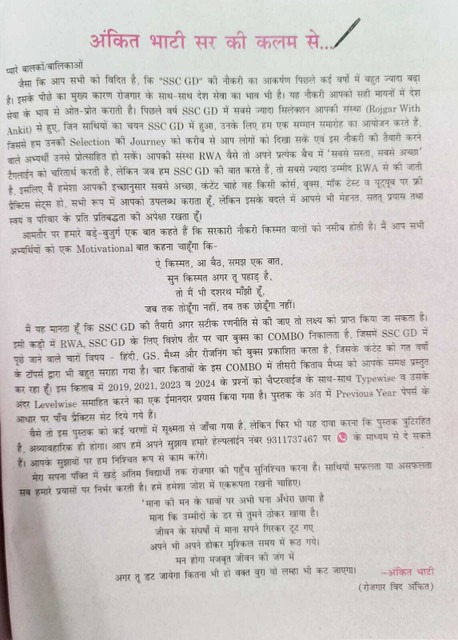 अंकित भाटी सर की कलम से...
प्यारे बालकों/बालिकाओं
जैसा कि आप सभी को विदित है, कि "SSC GD" की नौकरी का आकर्षण पिछले कई वर्षों में बहुत ज्यादा बढ़ा
है। इसके पीछे का मुख्य कारण रोजगार के साथ-साथ देश सेवा का भाव भी है। यह नौकरी आपको सही मायनों में देश
सेवा के भाव से ओत-प्रोत कराती है। पिछले वर्ष SSC GD में सबसे ज्यादा सिलेक्शन आपकी संस्था (Rojgar With
Ankit) से हुए, जिन साथियों का चयन SSC GD में हुआ, उनके लिए हम एक सम्मान समारोह का आयोजन करते है,
जिससे हम उनको Selection की Journey को करीब से आप लोगों को दिखा सके एवं इस नौकरी की तैयारी करने
वाले अभ्यर्थी उनसे प्रोत्साहित हो सकें। आपकी संस्था RWA वैसे तो अपने प्रत्येक बैच में 'सबसे सस्ता, सबसे अच्छा'
टैगलाईन को चरितार्थ करती है, लेकिन जब हम SSC GD की बात करते है, तो सबसे ज्यादा उम्मीद RWA से की जाती
है, इसलिए मैं हमेशा आपकी इच्छानुसार सबसे अच्छा, कंटेट चाहे वह किसी कोर्स, बुक्स, मॉक टेस्ट व यूट्यूब पर फ्री
प्रैक्टिस सेट्स हो, सभी रूप में आपको उपलब्ध कराता हूँ, लेकिन इसके बदले में आपसे भी मेहनत, सतत् प्रयास तथा
स्वयं व परिवार के प्रति प्रतिबद्धता की अपेक्षा रखता हूँ।
आमतौर पर हमारे बड़े-बुजुर्ग एक बात कहते हैं कि सरकारी नौकरी किस्मत वालों को नसीब होती है। मैं आप सभी
अभ्यर्थियों को एक Motivational बात कहना चाहूँगा कि-
ऐ किस्मत, आ बैठ, समझ एक बात,
सुन किस्मत अगर तू पहाड़ है,
तो मैं भी दशरथ माँझी हूँ,
जब तक तोडूँगा नहीं, तब तक छोडूँगा नहीं।
मैं यह मानता हूँ कि SSC GD की तैयारी अगर सटीक रणनीति से की जाए तो लक्ष्य को प्राप्त किया जा सकता है।
इसी कड़ी में RWA, SSC GD के लिए विशेष तौर पर चार बुक्स का COMBO निकालता है, जिसमें SSC GD में
पूछे जाने वाले चारों विषय - हिंदी, GS, मैथ्स और रीजनिंग की बुक्स प्रकाशित करता है, जिसके कंटेट को गत वर्षों
के टॉपर्स द्वारा भी बहुत सराहा गया है। चार किताबों के इस COMBO में तीसरी किताब मैथ्स को आपके समक्ष प्रस्तुत
कर रहा हूँ। इस किताब में 2019, 2021, 2023 व 2024 के प्रश्नों को चैप्टरवाईज के साथ-साथ Typewise व उसके
अंदर Levelwise समाहित करने का एक ईमानदार प्रयास किया गया है। पुस्तक के अंत में Previous Year पेपर्स के
आधार पर पाँच प्रैक्टिस सेट दिये गये हैं।
वैसे तो इस पुस्तक को कई चरणों में सूक्ष्मता से जाँचा गया है, लेकिन फिर भी यह दावा करना कि पुस्तक त्रुटिरहित
है, अव्यावहारिक ही होगा। आप हमें अपने सुझाव हमारे हेल्पलाईन नंबर 9311737467 पर के माध्यम से दे सकते
हैं। आपके सुझावों पर हम निश्चित रूप से काम करेंगे।
मेरा सपना पंक्ति में खड़े अंतिम विद्यार्थी तक रोजगार की पहुँच सुनिश्चित करना है। साथियों सफलता या असफलता
सब हमारे प्रयासों पर निर्भर करती है। हमें हमेशा जोश में एकरूपता रखनी चाहिए।
'माना की मन के घावों पर अभी घना अँधेरा छाया है
माना कि उम्मीदों के डर से तुमने ठोकर खाया है।
जीवन के संघर्षों में माना सपने गिरकर टूट गए
अपने भी अपने होकर मुश्किल समय में रूठ गये।
मन होगा मजबूत जीवन की जंग में
अगर तू डट जायेगा कितना भी हो वक्त बुरा वो लम्हा भी कट जाएगा।
-अंकित भाटी
(रोजगार विद अंकित)